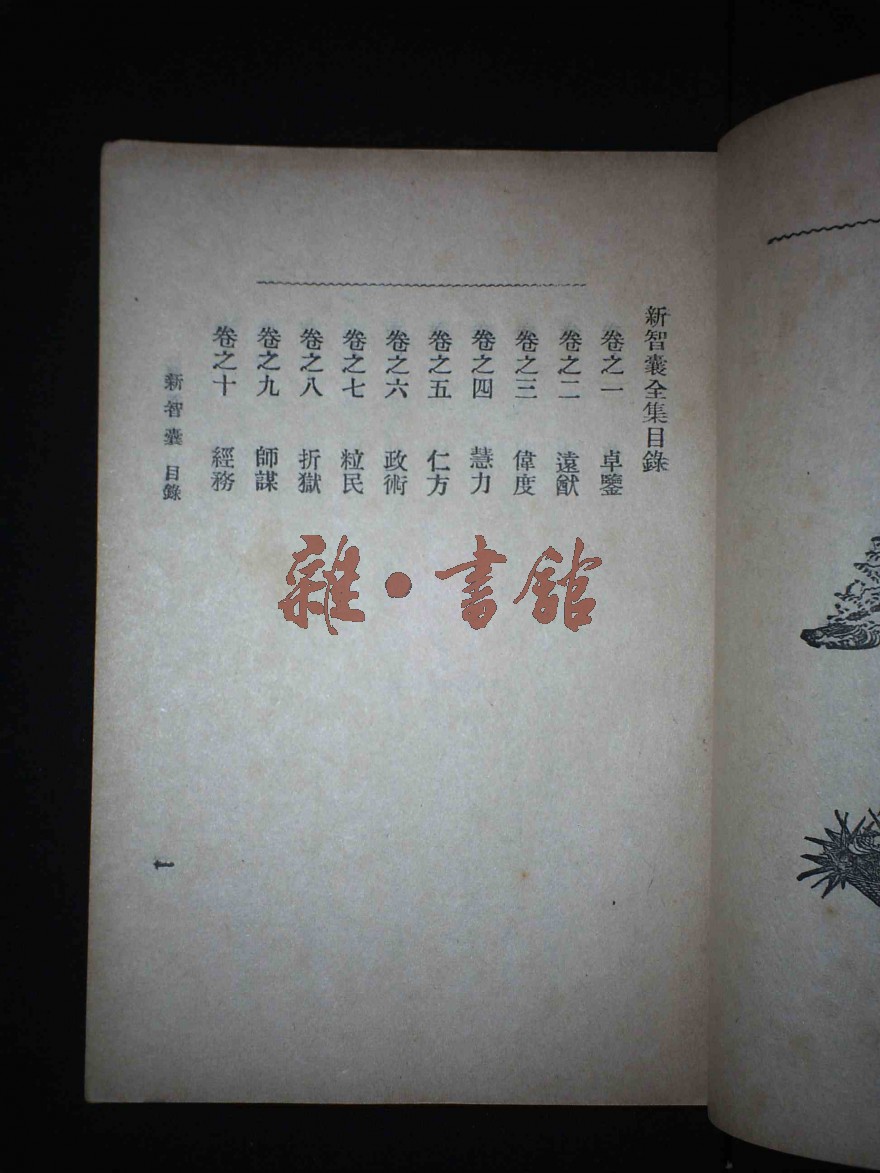 新智囊全集目錄
卷之一 卓鑒
卷之二 遠猷
卷之三 偉度
卷之四 慧力
卷之五 仁方
卷之六 政術
卷之七 粒民
卷之八 折獄
卷之九 師謀
卷之十 經務
新智囊 目錄
一
雜•書館